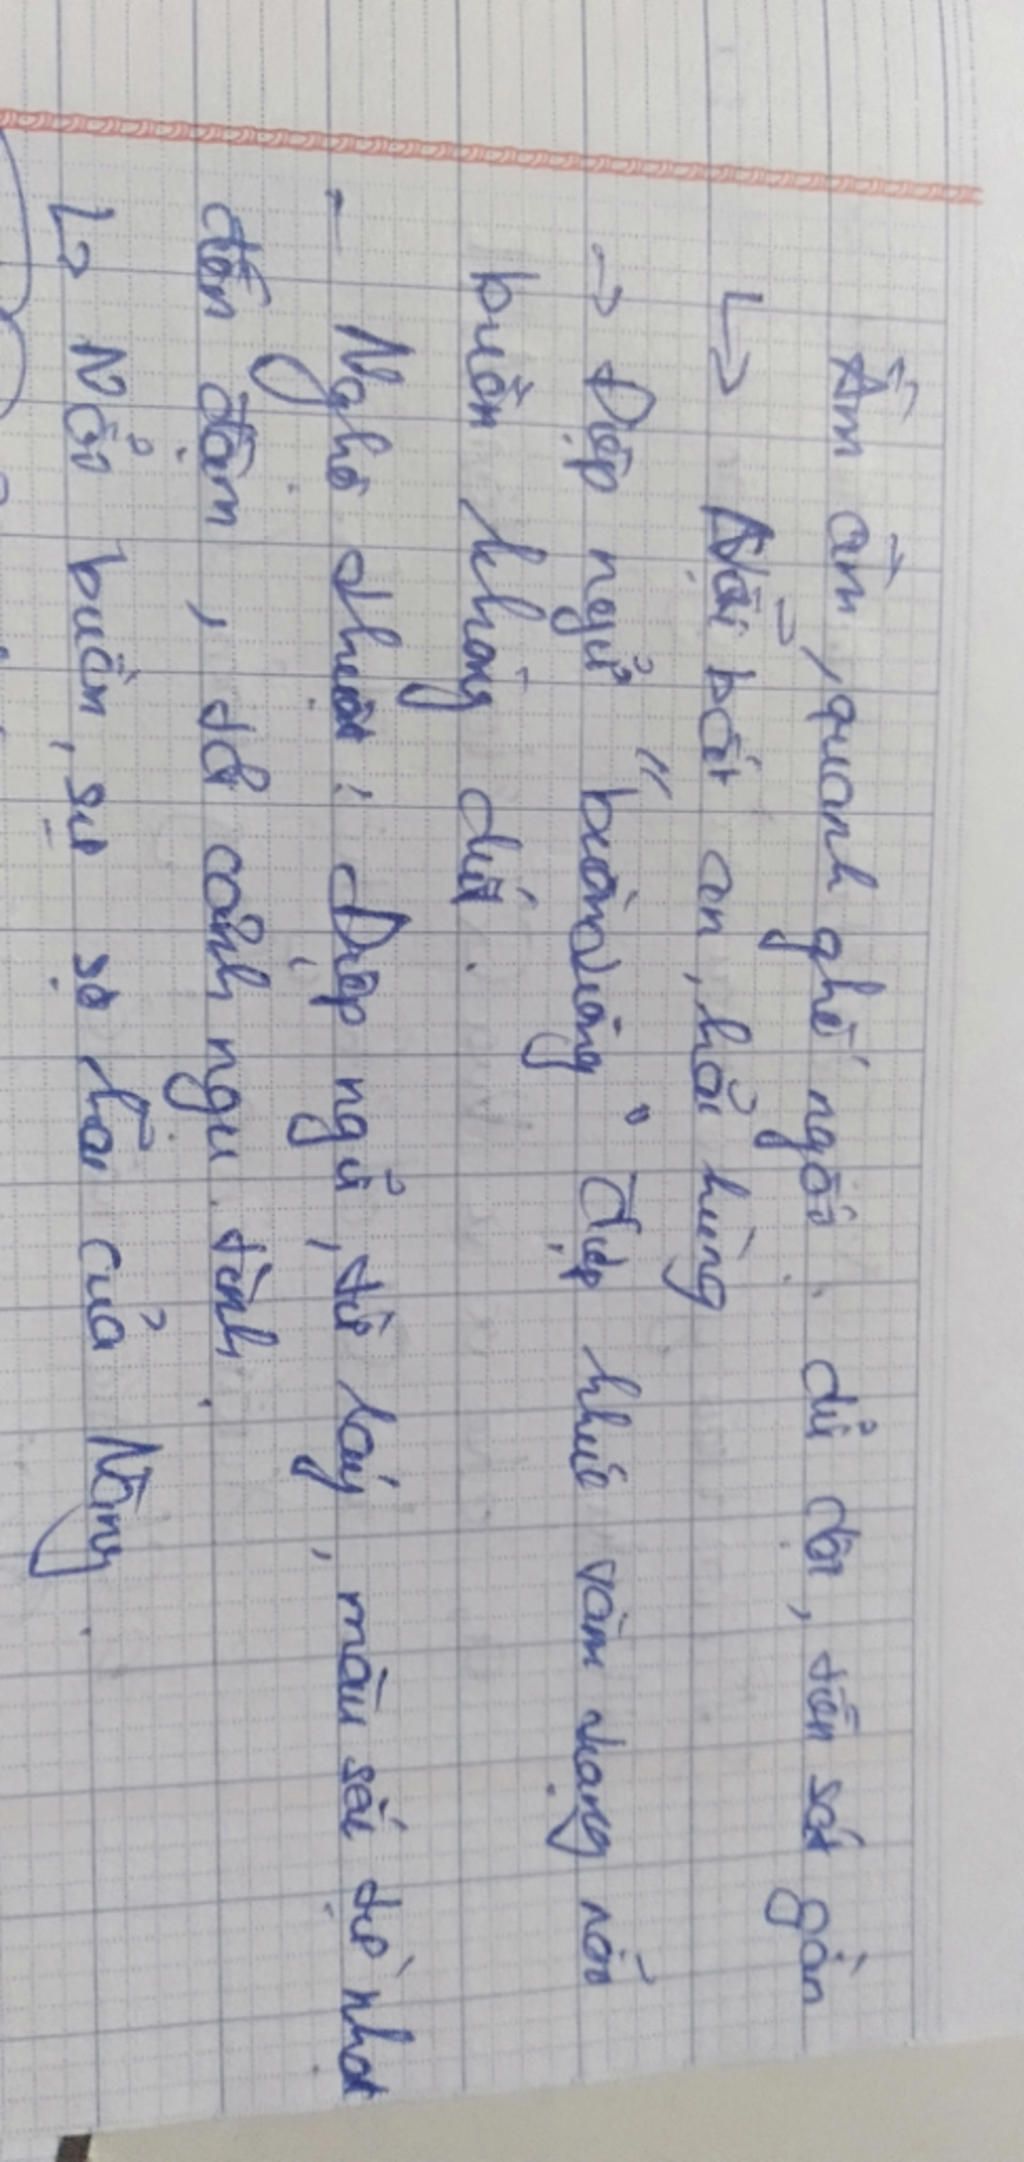 Ầm ầm, quanh ghế ngồi. dữ dội, tiến sát gần
↳ Nỗi bất an, hãi hùng
→ Điệp ngữ "buồn trông" điệp khúc vòm vang nối
buồn không dứt.
- Nghệ thuật: Điệp ngữ, từ láy, màu sắc từ nhạt
đến đậm, tả cảnh ngụ tình.
↳ Nỗi buồn, sự sợ hãi của Nàng.